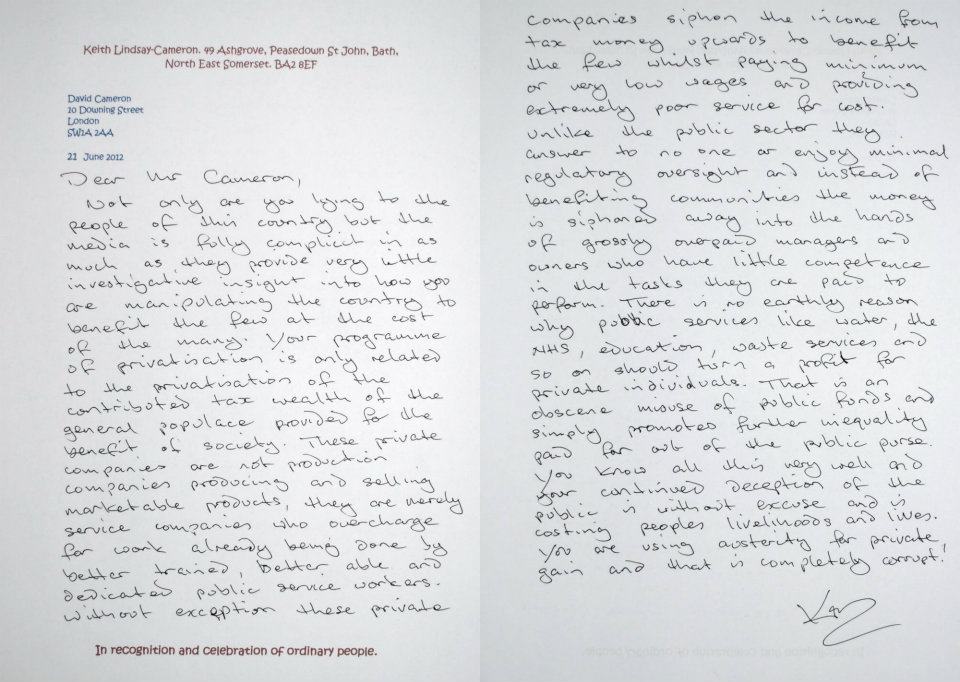 Keith Lindsay-Cameron. 49 Ashgrove, Peasedown St John, Bath,
North East Somerset. BA2 8EF
David Cameron
10 Downing Street
London
SW1A 2AA
21 June 2012
Dear Mr Cameron,
Not only are you lying to the
people of this country but the
media is fully complicit in as
much as they provide very little
investigative insight into how you
are manipulating the country to
benefit the few at the cost
of the many. Your programme
of privatisation is only related
to the privatisation of the
contributed tax wealth of the
general populace provided for the
benefit of society. These private
companies are not production
companies producing and selling
marketable products, they are merely
service companies who overcharge
for work already being done by
better trained, better able and
dedicated public service workers.
Without exception these private
In recognition and celebration of ordinary people.
companies siphon the income from
tax money upwards to benefit
the few whilst paying minimum
or very low wages and providing
extremely poor service for cost.
Unlike the public sector they
answer to no one or enjoy minimal
regulatory oversight and instead of
benefiting communities the money
is siphoned away into the hands
of grossly overpaid managers and
owners who have little competence
in the tasks they are paid to
perform. There is no earthly reason
why public services like water, the
NHS, education, waste services and
so on should turn a profit for
private individuals. That is an
obscene misuse of public funds and
simply promotes further inequality
paid for out of the public purse.
You know all this very well and
your continued deception of the
public is without excuse and is
costing peoples livelihoods and lives.
You are using austerity for private
gain and that is completely corrupt!